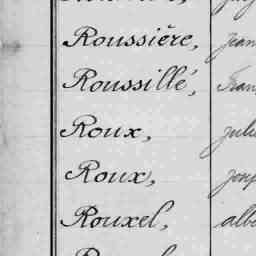 Roussière, Jean
Roussillé, Fran
Roux, Juli
Roux, Josep
Rouxel, albe